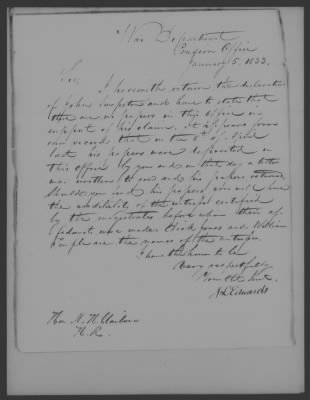 War Department
Pension Office
January 5, 1833.
Sir,
I herewith return the declaration
of John and have to state that
there are no papers in this Office in
support of his claim. It appears from
our record that on the 5th of April
last his papers were deposited in
this office by you and on that day a letter
was written to you and his papers returned.
Should you send his papers you will have
the credibility of the witnesses certified
by the magistrates before whom their af-
fidavits were made. Jones and William
Temple are the names of the witnesses.
I have the honor to be
Very respectfully
Your Obt. Servt.
J L Edwards
Hon. N. H. Claiborne
H. R.